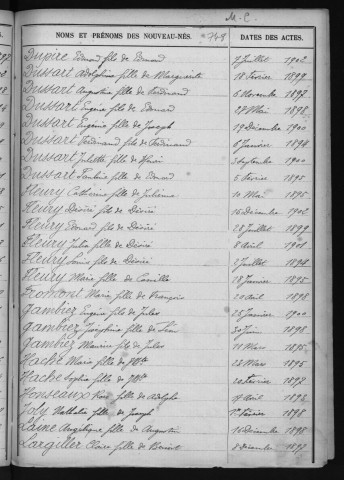 M. C.
NOMS ET PRÉNOMS DES NOUVEAU-NÉS.
DATES DES ACTES.
Dupire Edmond fils de Edmond 7 Juillet 1902
Dussart Adolphine fille de Marguerite 18 Février 1899
Dussart Augustine fille de Ferdinand 6 Novembre 1897
Dussart Eugène fils de Edmond 28 Mai 1898
Dussart Eugénie fille de Joseph 19 Décembre 1900
Dussart Ferdinand fils de Ferdinand 6 Janvier 1894
Dussart Juliette fille de Henri 3 Septembre 1900
Dussart fille de Edmond 5 Février 1895
Fleury Catherine fille de 10 Mai 1895
Fleury Désiré fils de Désiré 16 Décembre 1902
Fleury Edouard fils de Désiré 28 Juillet 1899
Fleury Julia fille de Désiré 8 Avril 1901
Fleury Louis fils de Désiré 2 Juillet 1894
Fleury Marie fille de Camille 18 Janvier 1895
Fromont Maria fille de François 20 Avril 1898
Gambiez Eugène fils de Jules 25 Janvier 1900
Gambiez Joséphine fille de 30 Juin 1898
Gambiez Maurice fils de Jules 11 Mars 1895
Hache Maria fille de 28 Mars 1895
Hache Sophie fille de 20 Février 1897
Honseaux fille de Adolphe 9 Avril 1896
Joly Nathalie fille de Joseph 1er Février 1898
Laine Angélique fille de Augustin 16 Décembre 1898
Largiller Claire fille de Benoit 8 Décembre 1897